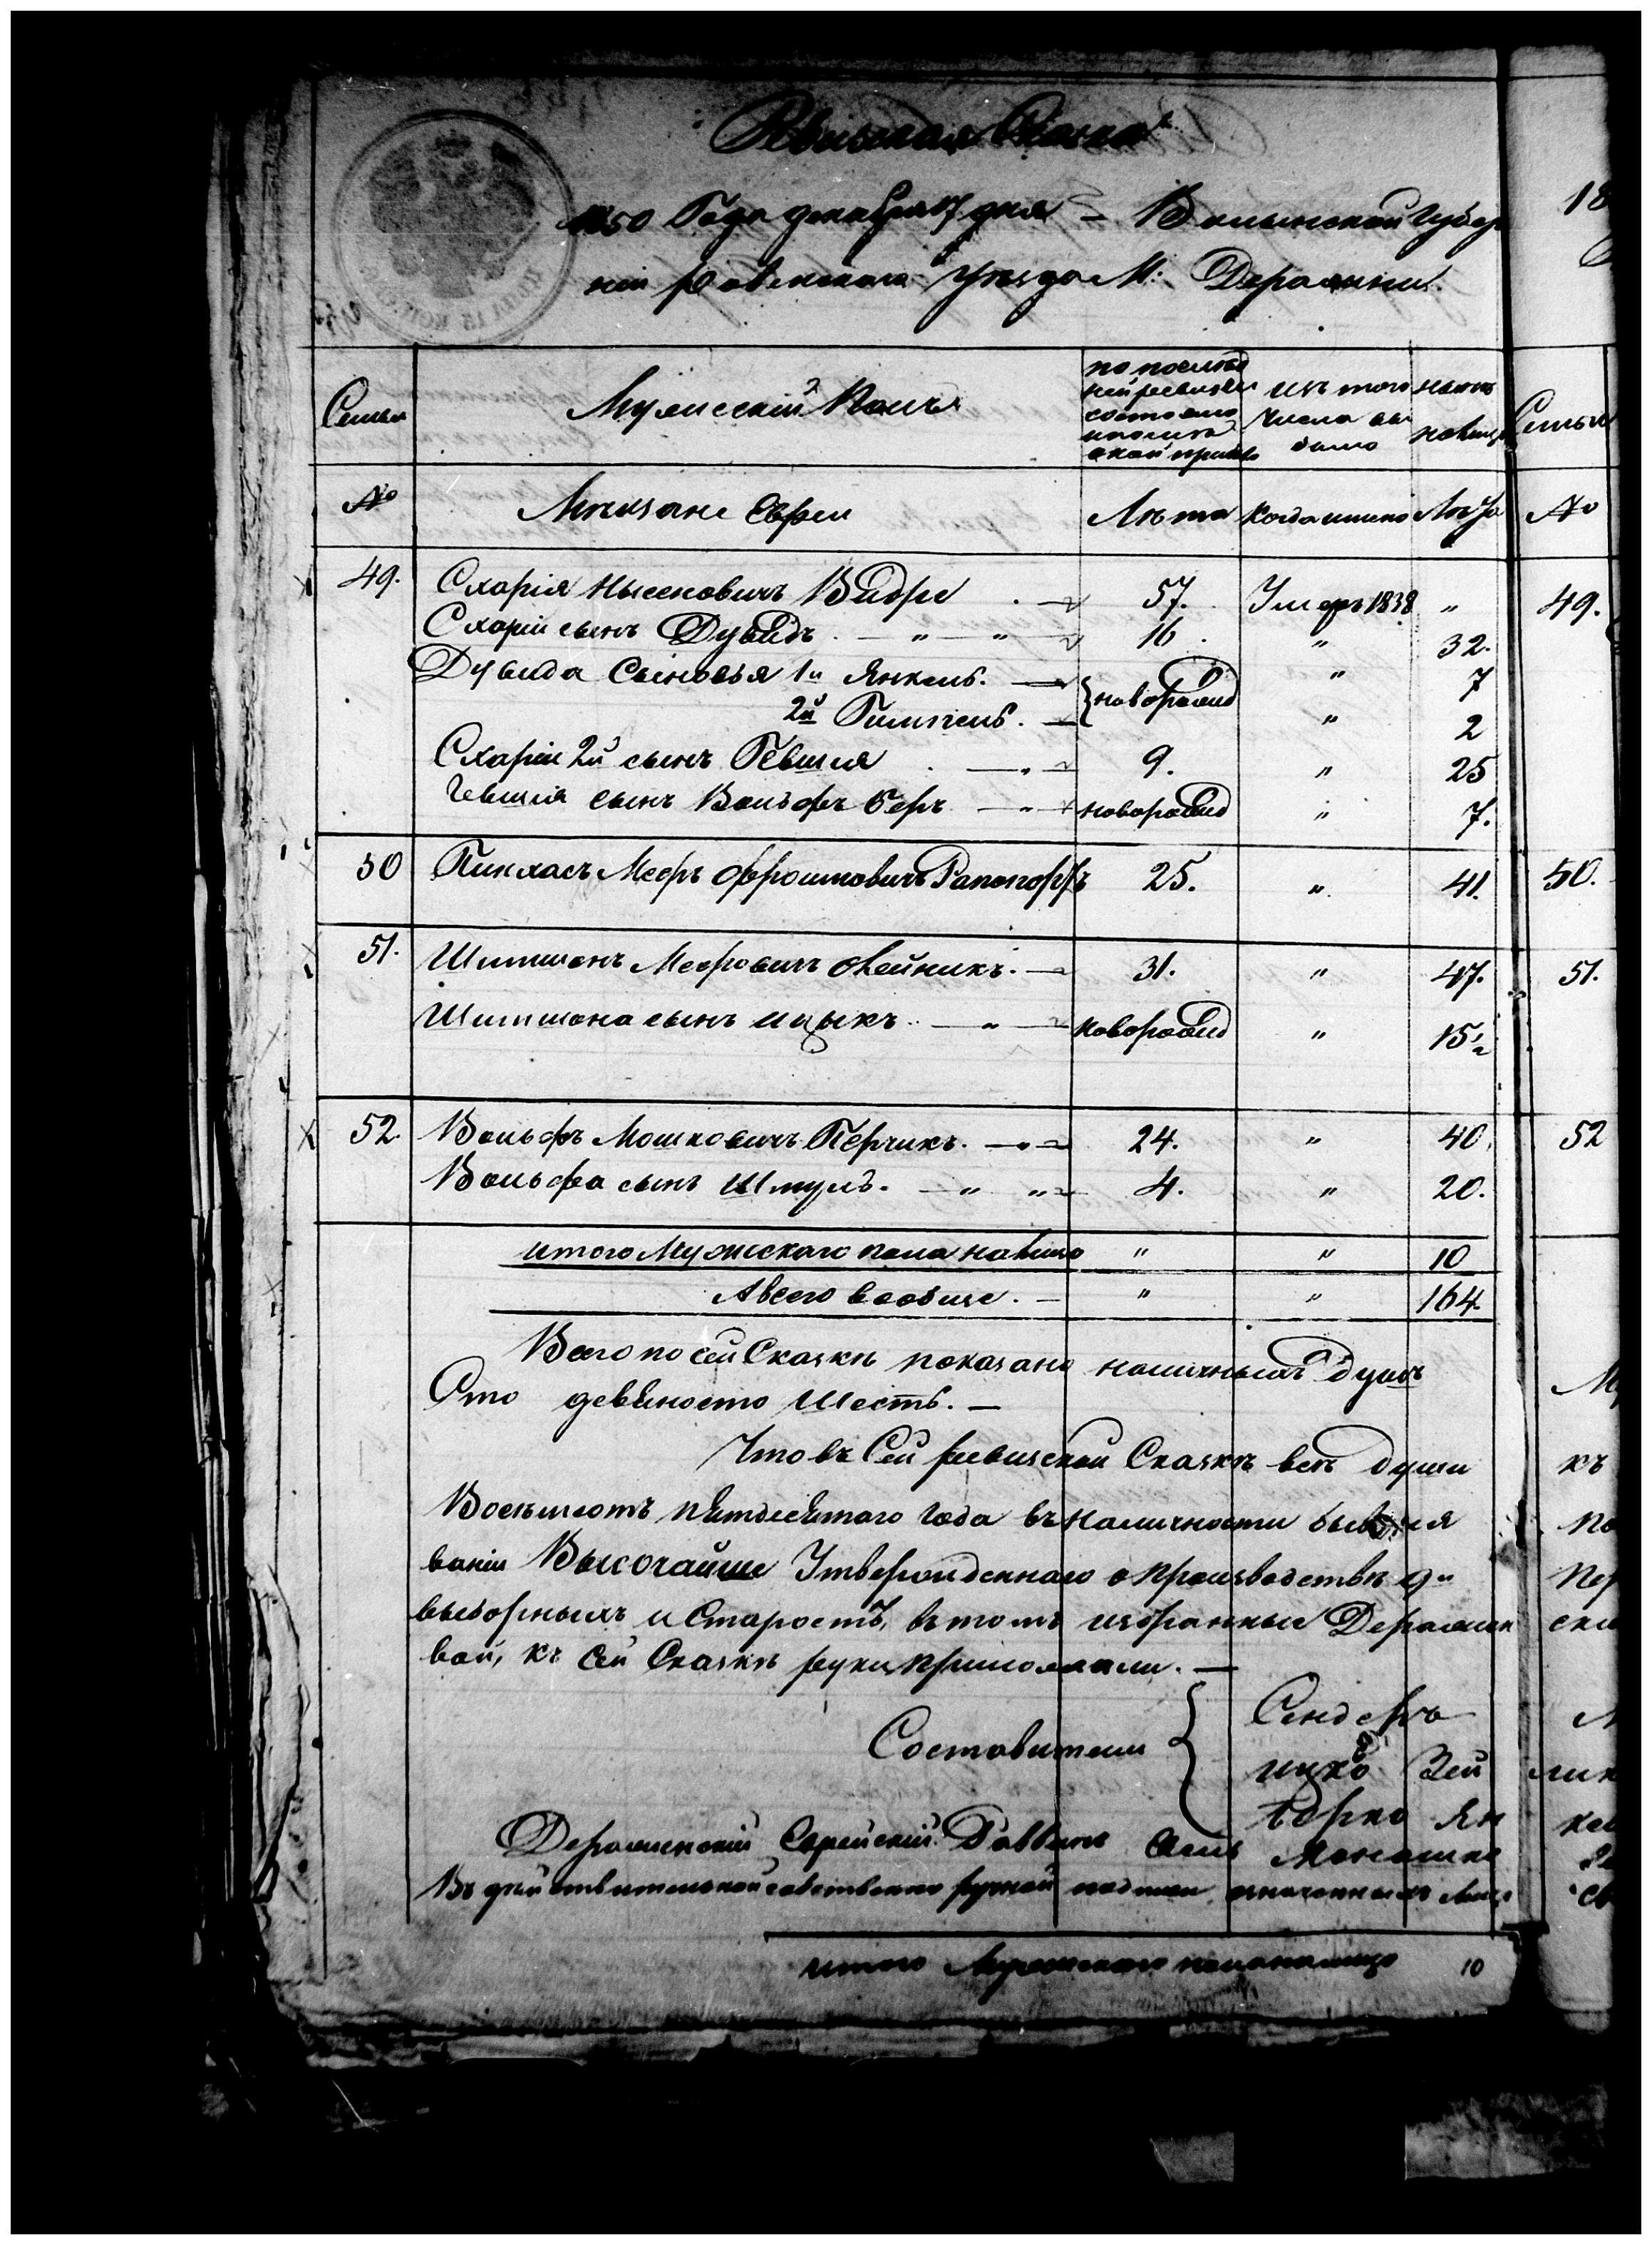 Ревизская Сказка
1850 Года декабря 17 дня – Волынской Губер
ніи Ровенского Уезда М: Деражни
Семьи
Мужескій Полъ
по послед
ней ревизіи
состояло
и после
оной прибыло
изъ того
числа вы
было
ныне
на лицо
Семьи
№
Мещане Евреи
Лета
когда именно
Лета
№
49.
Схарія Нысеновичъ Видре
57.
Умеръ 1838
"
49.
Схаріи сынъ Дувидъ. — " — "
16.
"
32.
Дувида Сыновья 1й Янкель. —
новорожд
"
7
2й Гимпель. —
"
2
Схаріи 2й сынъ Гевшія
9.
"
25
Гевшія сынъ Вольфъ Беръ — "
новорожд
"
7.
50
Пинхасъ Мееръ Фроимовичъ Рапопортъ
25.
"
41.
50.
51.
Шимшонъ Мееровичъ Олейникъ. —
31.
"
47.
51.
Шимшона сынъ Ицыкъ. — " —
новорожд
"
15½
52.
Вольфъ Мошковичъ Перчикъ. — " —
24.
"
40.
52
Вольфа сынъ Шмуль. — " "
4.
"
20.
итого Мужескаго пола налицо
"
"
10
А всего вообще. —
"
"
164.
Всего по сей Сказке показано наличныхъ душъ
Сто девяносто Шесть. —
Что въ Сей ревизской Сказке все души
къ
Восемьсотъ пятдесятого года въ наличности
по
ваніи Высочайше Утвержденнаго о производстве 9й
пер
выборныхъ и Старостъ, въ томъ избранные Деражн
ски
вой, къ Сей Сказке руки приложили. —
Составители
Сендеръ
Ицко Зей
лик
Берко Ян
кел
Деражненскій Еврейскій Раввинъ Манашко
Въ действительной собственно ручной подписи означенныхъ лиц
итого Мужескаго пола налицо 10